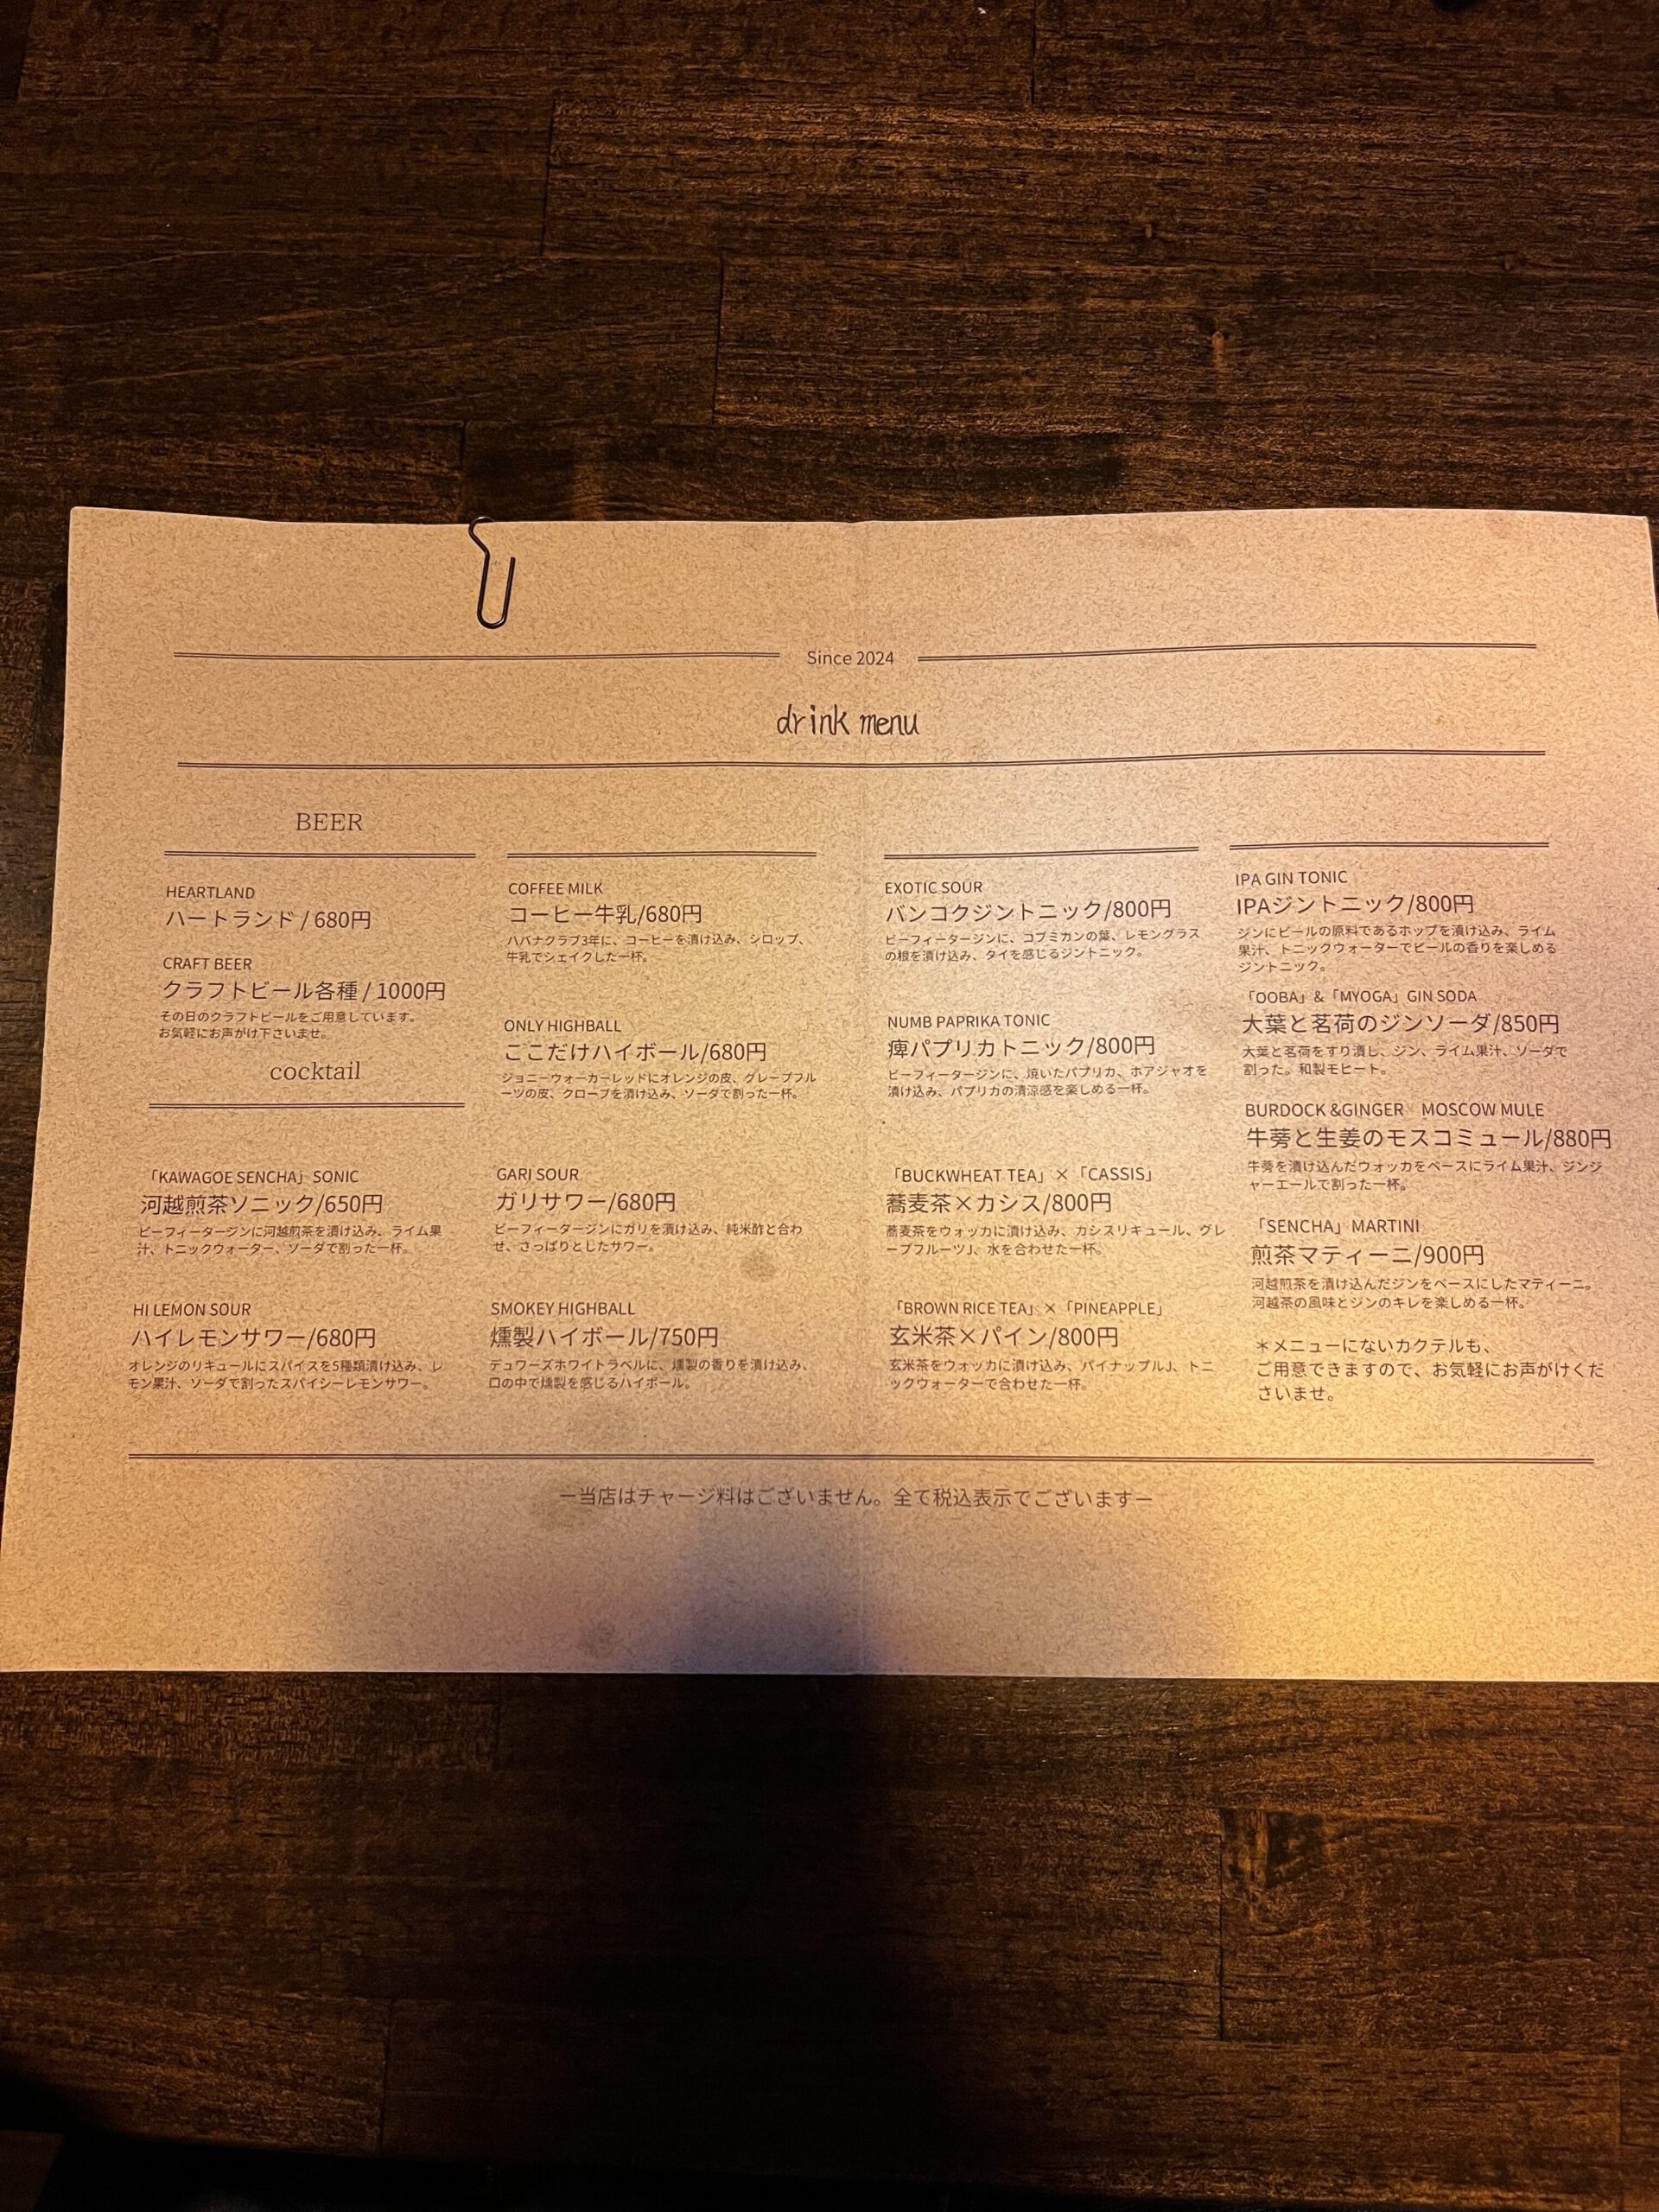 Since 2024
drink menu
BEER
HEARTLAND
ハートランド / 680円
CRAFT BEER
クラフトビール各種 / 1000円
その日のクラフトビールをご用意しています。
お気軽にお声がけ下さいませ。
cocktail
「KAWAGOE SENCHA」SONIC
河越煎茶ソニック/650円
ビーフィータージンに河越煎茶を漬け込み、ライム果
汁、トニックウォーター、ソーダで割った一杯。
HI LEMON SOUR
ハイレモンサワー/680円
オレンジのリキュールにスパイスを5種類漬け込み、レ
モン果汁、ソーダで割ったスパイシーレモンサワー。
COFFEE MILK
コーヒー牛乳/680円
ハバナクラブ3年に、コーヒーを漬け込み、シロップ、
牛乳でシェイクした一杯。
ONLY HIGHBALL
ここだけハイボール/680円
ジョニーウォーカーレッドにオレンジの皮、グレープフル
ーツの皮、クローブを漬け込み、ソーダで割った一杯。
GARI SOUR
ガリサワー/680円
ビーフィータージンにガリを漬け込み、純米酢と合わ
せ、さっぱりとしたサワー。
SMOKEY HIGHBALL
燻製ハイボール/750円
デュワーズホワイトラベルに、燻製の香りを漬け込み、
口の中で燻製を感じるハイボール。
EXOTIC SOUR
バンコクジントニック/800円
ビーフィータージンに、コブミカンの葉、レモングラス
の根を漬け込み、タイを感じるジントニック。
NUMB PAPRIKA TONIC
痺パプリカトニック/800円
ビーフィータージンに、焼いたパプリカ、ホアジャオを
漬け込み、パプリカの清涼感を楽しめる一杯。
「BUCKWHEAT TEA」×「CASSIS」
蕎麦茶×カシス/800円
蕎麦茶をウォッカに漬け込み、カシスリキュール、グレ
ープフルーツJ、水を合わせた一杯。
「BROWN RICE TEA」×「PINEAPPLE」
玄米茶×パイン/800円
玄米茶をウォッカに漬け込み、パイナップルJ、トニ
ックウォーターで合わせた一杯。
IPA GIN TONIC
IPAジントニック/800円
ジンにビールの原料であるホップを漬け込み、ライム
果汁、トニックウォーターでビールの香りを楽しめる
ジントニック。
「OOBA」&「MYOGA」GIN SODA
大葉と茗荷のジンソーダ/850円
大葉と茗荷をすり潰し、ジン、ライム果汁、ソーダで
割った。和製モヒート。
BURDOCK &GINGER　MOSCOW MULE
牛蒡と生姜のモスコミュール/880円
牛蒡を漬け込んだウォッカをベースにライム果汁、ジンジ
ャーエールで割った一杯。
「SENCHA」MARTINI
煎茶マティーニ/900円
河越煎茶を漬け込んだジンをベースにしたマティーニ。
河越茶の風味とジンのキレを楽しめる一杯。
＊メニューにないカクテルも、
ご用意できますので、お気軽にお声がけくだ
さいませ。
ー当店はチャージ料はございません。全て税込表示でございますー